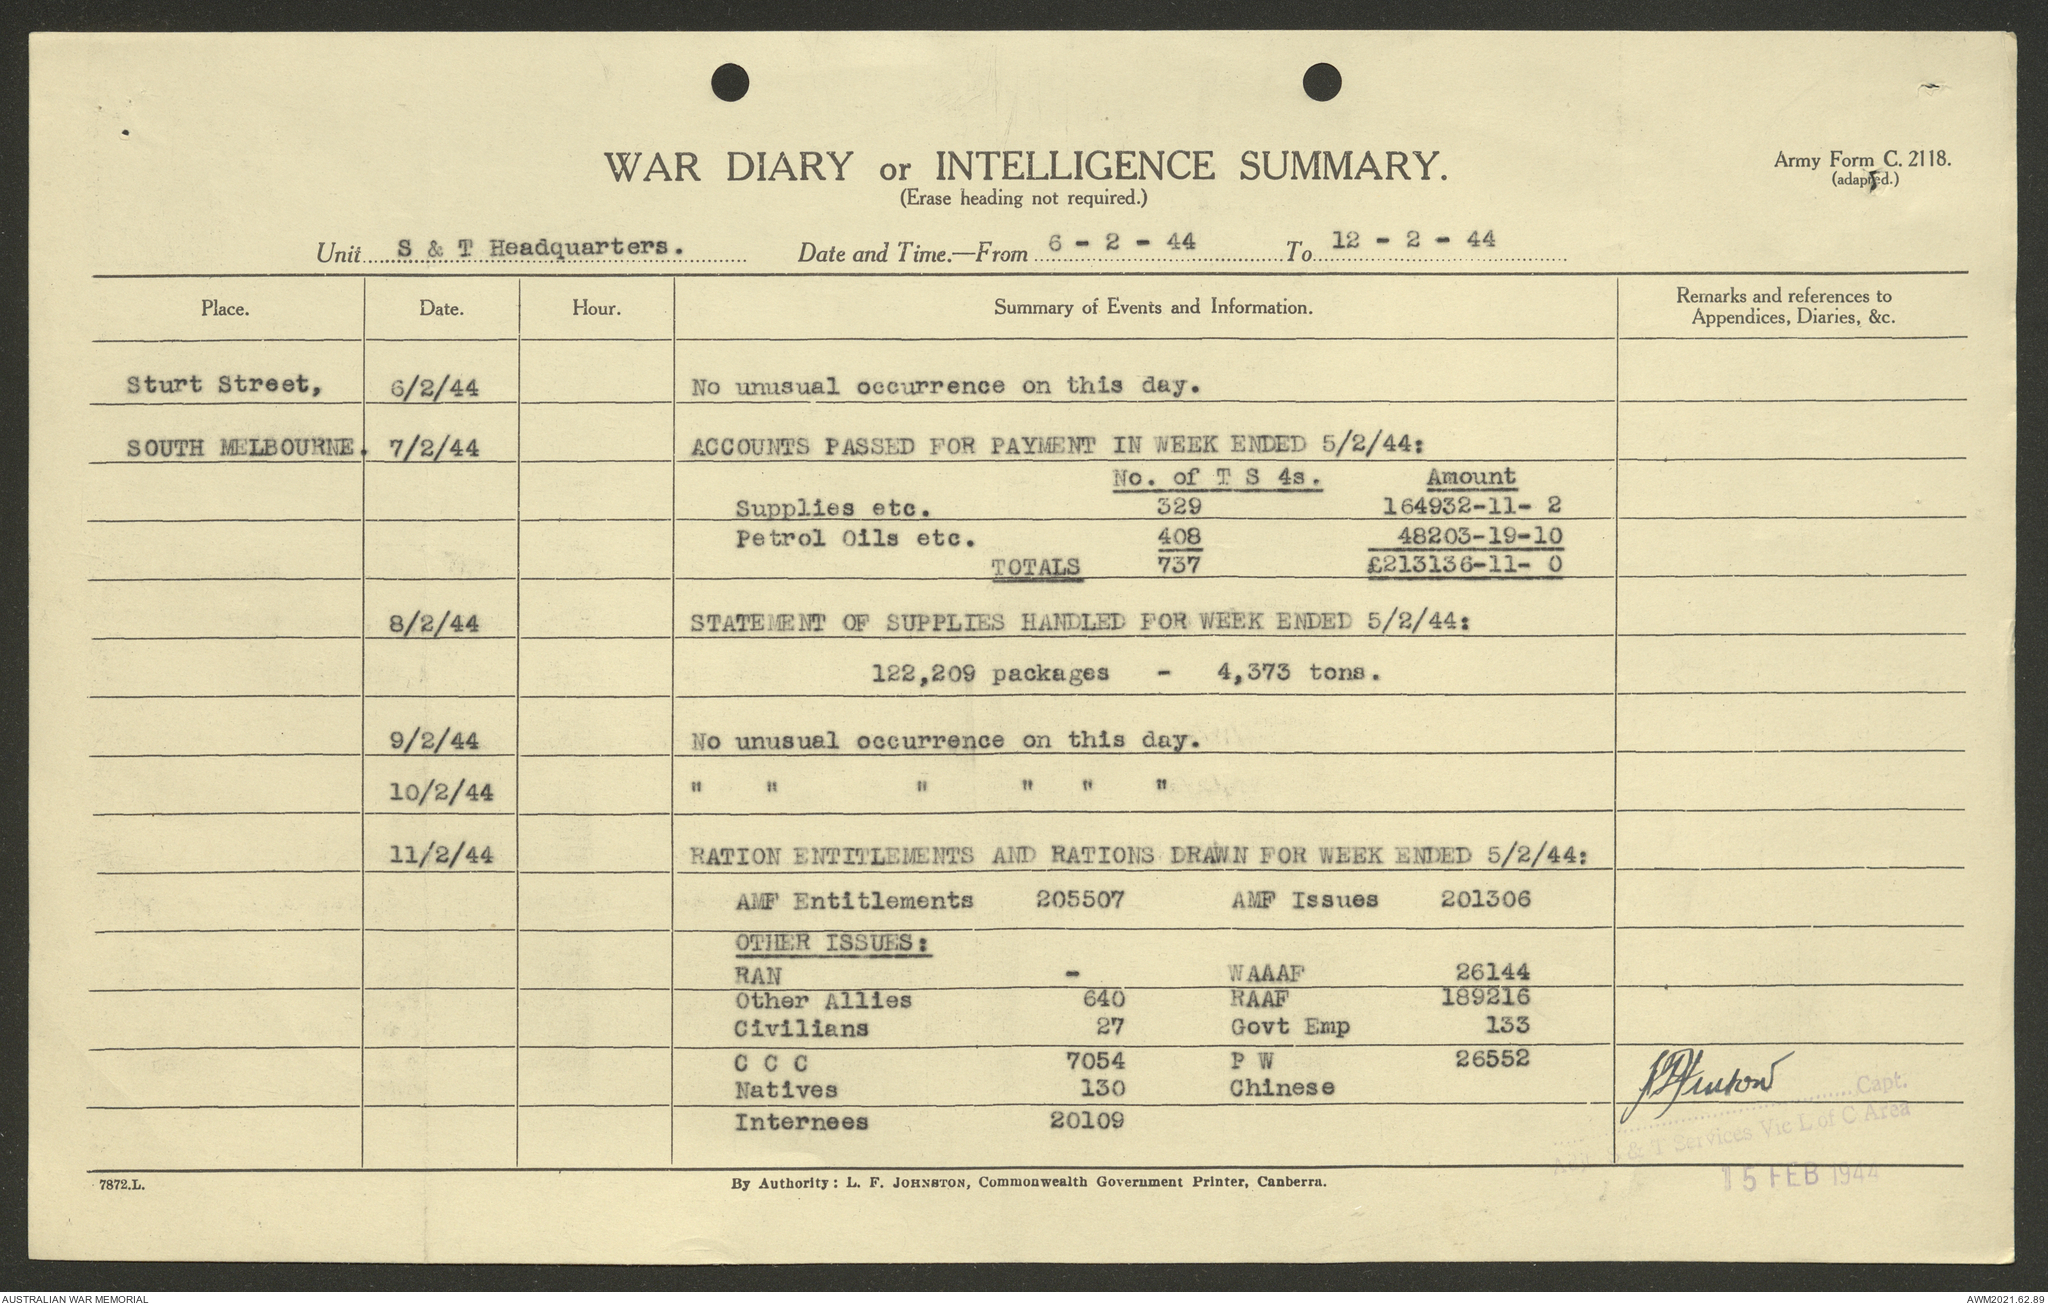 WAR DIARY or INTELLIGENCE SUMMARY.
(Erase heading not required.)
Army Form C. 2118.
(adapted.)
Unit S & T Headquarters. Date and Time.—From 6 - 2 - 44 To 12 - 2 - 44
Place. Date. Hour. Summary of Events and Information. Remarks and references to Appendices, Diaries, &c.
Sturt Street, 6/2/44 No unusual occurrence on this day.
SOUTH MELBOURNE. 7/2/44 ACCOUNTS PASSED FOR PAYMENT IN WEEK ENDED 5/2/44:
No. of T S 4s. Amount
Supplies etc. 329 164932-11- 2
Petrol Oils etc. 408 48203-19-10
TOTALS 737 £213136-11- 0
8/2/44 STATEMENT OF SUPPLIES HANDLED FOR WEEK ENDED 5/2/44:
122,209 packages - 4,373 tons.
9/2/44 No unusual occurrence on this day.
10/2/44 " " " " " "
11/2/44 RATION ENTITLEMENTS AND RATIONS DRAWN FOR WEEK ENDED 5/2/44:
AMF Entitlements 205507 AMF Issues 201306
OTHER ISSUES:
RAN - WAAAF 26144
Other Allies 640 RAAF 189216
Civilians 27 Govt Emp 133
C C C 7054 P W 26552
Natives 130 Chinese
Internees 20109
Capt.
Adjt. S & T Services Vic L of C Area
15 FEB 1944
7872.L. By Authority: L. F. JOHNSTON, Commonwealth Government Printer, Canberra.
AUSTRALIAN WAR MEMORIAL AWM2021.62.89